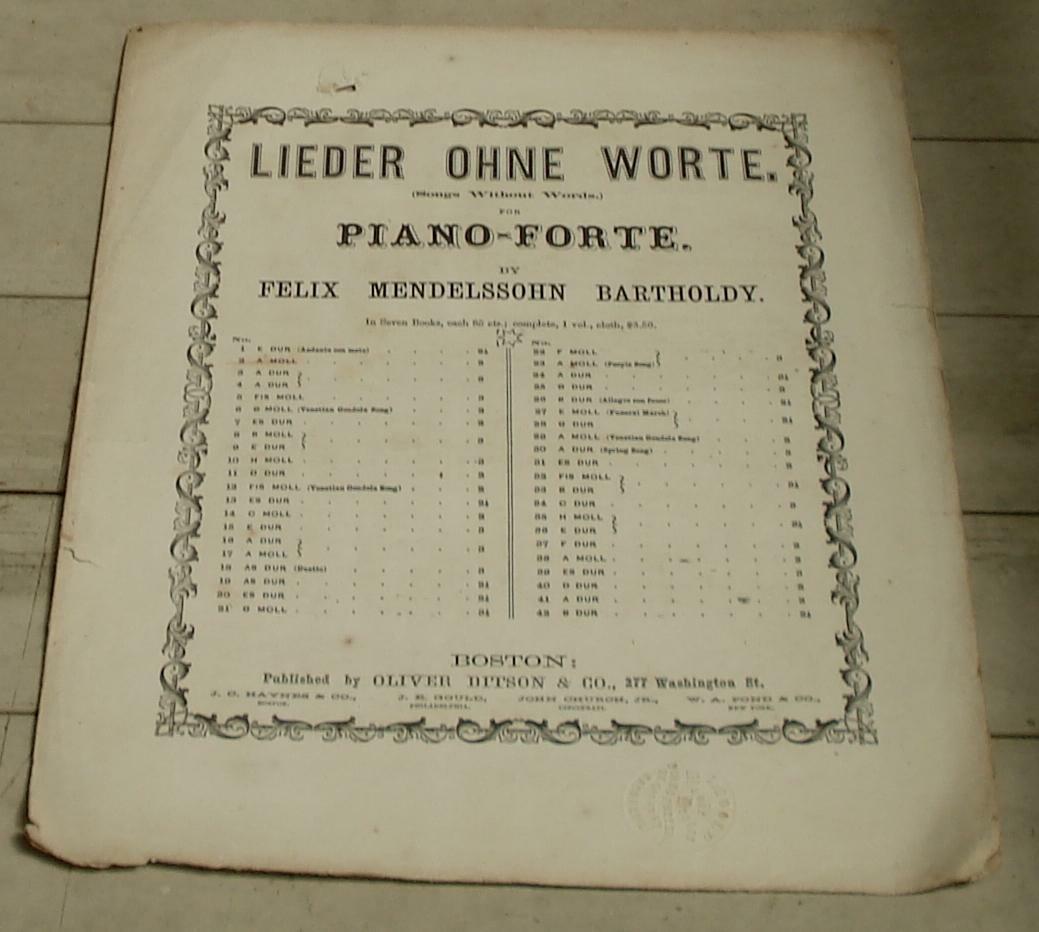 LIEDER OHNE WORTE.
(Songs Without Words.)
FOR
PIANO-FORTE.
BY
FELIX MENDELSSOHN BARTHOLDY.
In Seven Books, each cts.; complete, 1 vol., cloth,
No.
1 E DUR (Andante con moto)
2 A MOLL
3 A DUR
4 A DUR
5 FIS MOLL
6 G MOLL (Venetian Gondola Song)
7 ES DUR
8 B MOLL
9 E DUR
10 H MOLL
11 D DUR
12 FIS MOLL (Venetian Gondola Song)
13 ES DUR
14 C MOLL
15 E DUR
16 A DUR
17 A MOLL
18 AS DUR (Duetto)
19 AS DUR
20 ES DUR
21 G MOLL
No.
22 F MOLL
23 A MOLL
24 A DUR
25 G DUR
26 B DUR (Allegro con fuoco)
27 E MOLL (Funeral March)
28 G DUR
29 A MOLL (Venetian Gondola Song)
30 A DUR (Spring Song)
31 ES DUR
32 FIS MOLL
33 B DUR
34 C DUR
35 H MOLL
36 E DUR
37 F DUR
38 A MOLL
39 ES DUR
40 D DUR
41 A DUR
42 B DUR
BOSTON:
Published by OLIVER DITSON & CO., 277 Washington St.
J. C. HAYNES & CO., J. E. GOULD, JOHN CHURCH, JR., W. A. POND & CO.,
BOSTON. PHILADELPHIA. CINCINNATI. NEW YORK.